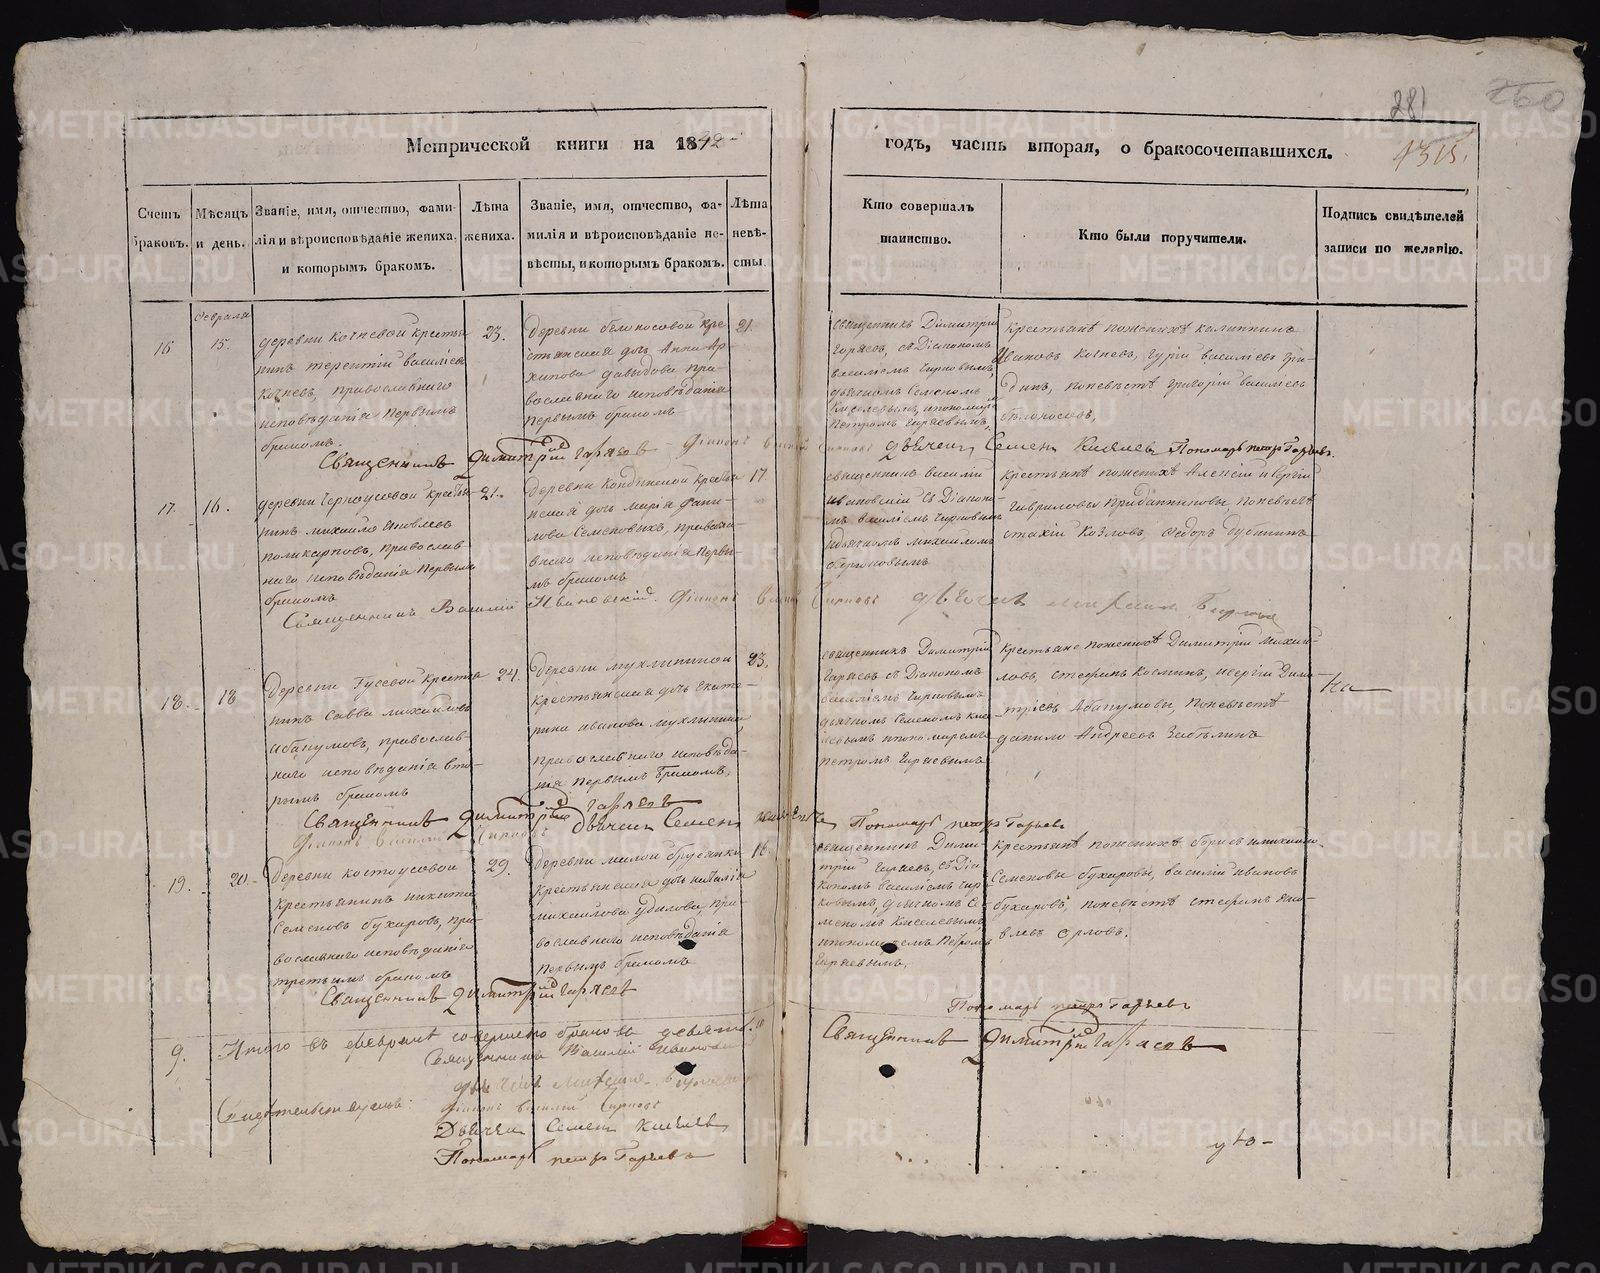 281
260
1315.
Метрической книги на 1842
годъ, часть вторая, о бракосочетавшихся.
Счетъ браковъ.
Мѣсяцъ и день.
Званіе, имя, отчество, фами-
лія и вѣроисповѣданіе жениха,
и которымъ бракомъ.
Лѣта
жениха.
Званіе, имя, отчество, фа-
милія и вѣроисповѣданіе не-
вѣсты, и которымъ бракомъ.
Лѣта
невѣ-
сты.
Кто совершалъ
таинство.
Кто были поручители.
Подпись свидѣтелей
записи по желанію.
февраля
16
15.
деревни Кочневой крестья
нинъ терентій василіевъ
Кочневъ, православнаго
исповѣданія первымъ
бракомъ.
23.
деревни белоносовой кре
стьянская дочь Анна Ар
хипова давыдова пра
вославнаго исповѣданія
первымъ бракомъ
21.
священникъ Димитрій
Гаряевъ, съ Діакономъ
василіемъ Чирковымъ,
дьячкомъ Семеномъ
Киселевымъ, и пономаремъ
Петромъ Гаряевымъ,
крестьянѣ по женихѣ калиннинъ
Ивановъ Кочневъ, гурій василіевъ
по невѣстѣ григорій василіевъ
белоносовъ,
Священникъ Димитрій Гаряевъ Діаконъ Василій Чирковъ дьячекъ Семенъ Киселевъ Пономарь петръ Гаряевъ
17.
16.
деревни Черноусовой крестья
нинъ михаило Яковлевъ
поликарповъ, православ-
наго исповѣданія первымъ
бракомъ
21.
деревни Кондинской крестья
нская дочь марья
лова Семеновыхъ, правосла-
внаго исповѣданія первы-
мъ бракомъ
17
священникъ василій
ивановскій съ Діаконо-
мъ василіемъ Чирковымъ
и дьячкомъ михаиломъ
бирюковымъ
крестьянѣ по женихѣ Алексій и Сергій
Гавриловы по невѣстѣ
Козловъ, Федоръ
Священникъ Василій Ивановскій. Діаконъ Василій Чирковъ дьячекъ михаилъ Бирюковъ
18.
18
деревни Гусевой крестья
нинъ Савва михаиловъ
Абакумовъ, православ-
наго исповѣданія вто-
рымъ бракомъ
24.
деревни мухлыниной
крестьянская дочь Екате-
рина иванова мухлынина
православнаго исповѣда-
нія первымъ бракомъ,
23.
священникъ Димитрій
Гаряевъ съ Діакономъ
василіемъ Чирковымъ
дьячкомъ Семеномъ Кисе
левымъ и пономаремъ
петромъ Гаряевымъ
крестьяне по женихѣ Димитрій Михаи-
ловъ, стефанъ Косминъ, и сергій Дими-
тріевъ Абакумовы, по невѣстѣ
данило Андреевъ Забѣлинъ
Священникъ Димитрій Гаряевъ
Діаконъ Василій Чирковъ дьячекъ Семенъ Киселевъ Пономарь петръ Гаряевъ
19.
20.
деревни костоусовой
крестьянинъ никита
Семеновъ бухаровъ, пра
вославнаго исповѣданія
третьимъ бракомъ
29.
деревни малой брусянки
крестьянская дочь наталія
михаилова Удилова, пра-
вославнаго исповѣданія
первымъ бракомъ
16
священникъ Дими-
трій Гаряевъ, съ Діа
кономъ василіемъ Чир
ковымъ, дьячкомъ Се
меномъ Киселевымъ,
и пономаремъ Петромъ
Гаряевымъ,
крестьянѣ по женихѣ борисъ и михаило
Семеновы бухаровы, василій ивановъ
бухаровъ, по невѣстѣ стефанъ Яко-
влевъ орловъ.
Священникъ Димитрій Гаряевъ
Пономарь петръ Гаряевъ
9.
Итого въ февралѣ совершено браковъ девять.
Священникъ Василій Ивановскій
Священникъ Димитрій Гаряевъ
дьячекъ михаилъ Бирюковъ
Свидѣтельствуемъ:
Діаконъ Василій Чирковъ
Дьячекъ Семенъ Киселевъ
Пономарь петръ Гаряевъ
METRIKI.GASO-URAL.RU